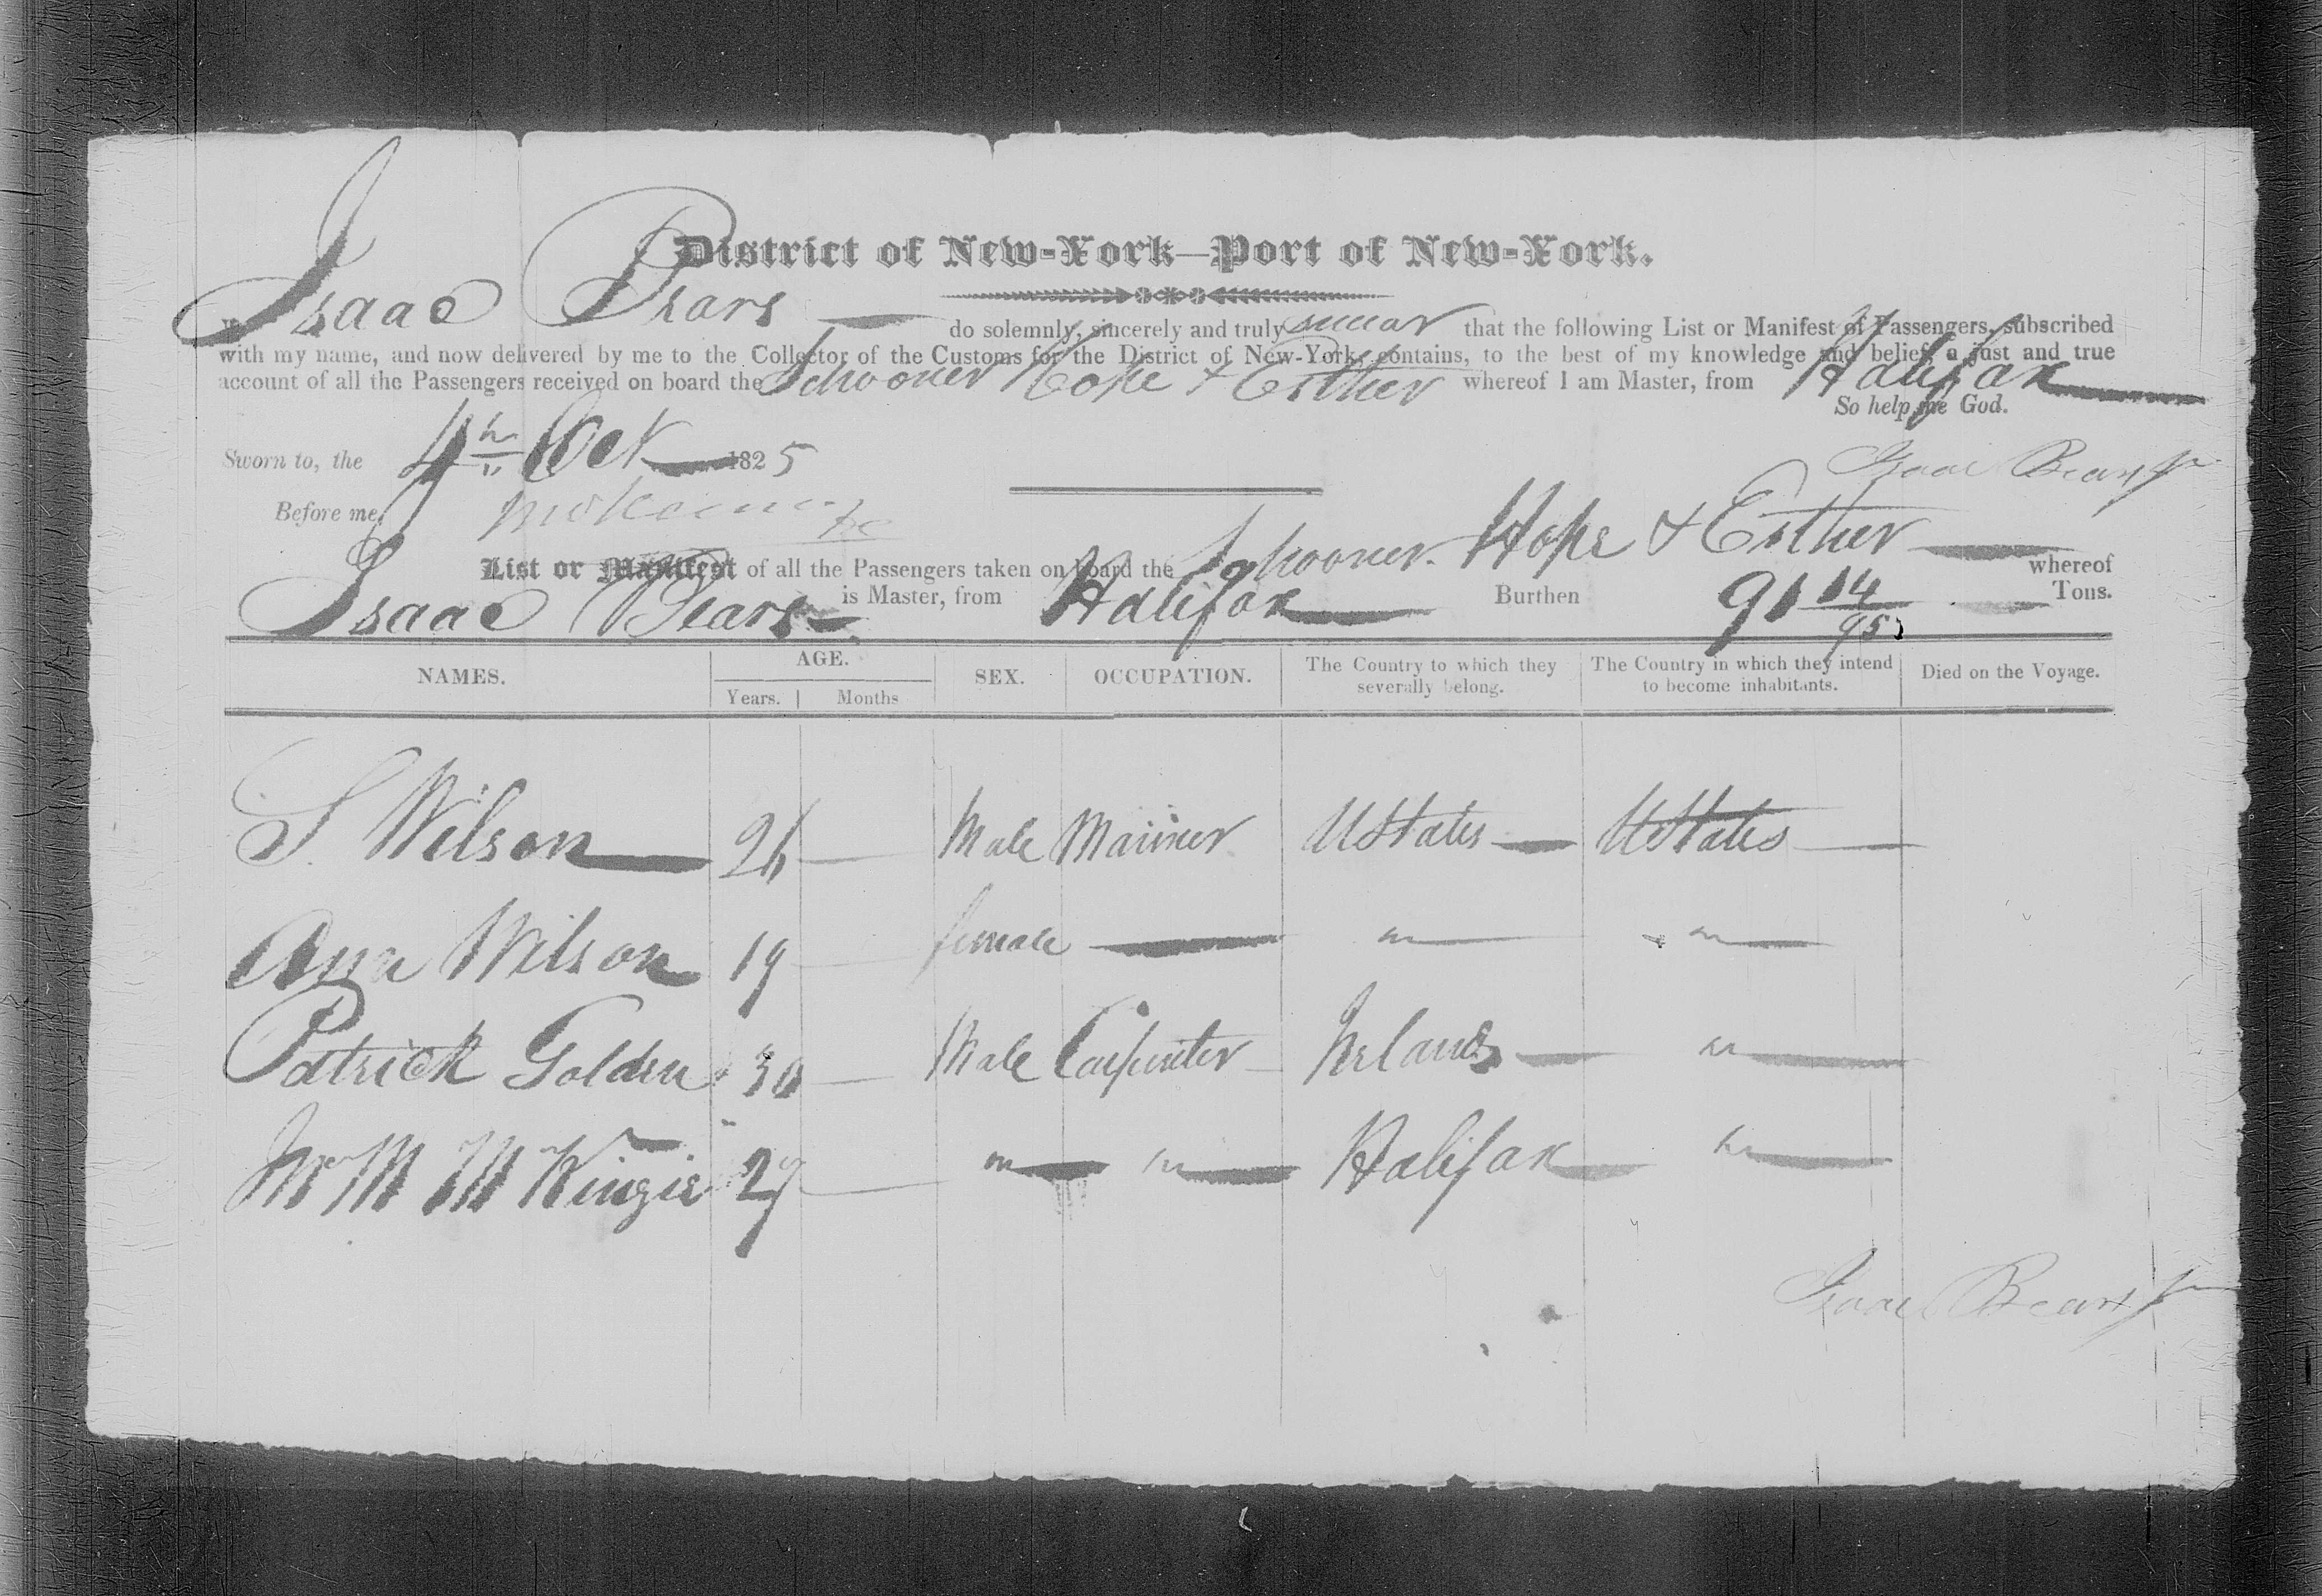 District of New-York—Port of New-York.
I, Isaac Pears do solemnly, sincerely and truly swear that the following List or Manifest of Passengers, subscribed
with my name, and now delivered by me to the Collector of the Customs for the District of New-York, contains, to the best of my knowledge and belief, a just and true
account of all the Passengers received on board the Schooner Hope & Esther whereof I am Master, from Halifax
So help me God.
Sworn to, the 4th Oct 1825
Isaac Bears Jr
Before me,
List or Manifest of all the Passengers taken on board the Schooner Hope & Esther whereof
Isaac Pears is Master, from Halifax Burthen 91 14/95 Tons.
NAMES. AGE. Years. Months SEX. OCCUPATION. The Country to which they severally belong. The Country in which they intend to become inhabitants. Died on the Voyage.
S. Wilson 26 Male Mariner UStates UStates
Ann Wilson 19 female — " "
Patrick Golden 30 Male Carpenter Ireland "
Wm McKingie 27 " " Halifax "
Isaac Bears Jr